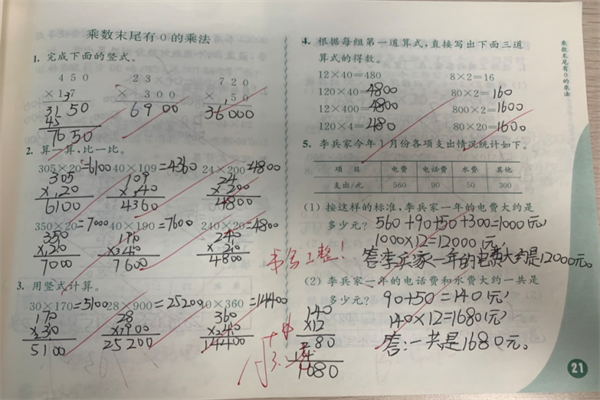 乘数末尾有0的乘法
1. 完成下面的竖式。
450 23 720
×17 ×300 ×50
3150 6900 36000
45
7650
2. 算一算,比一比。
305×20=6100 40×109=4360 24×200=4800
305 109 24
×20 ×40 ×200
6100 4360 4800
350×20=7000 40×190=7600 240×20=4800
350 190 240
×20 ×40 ×20
7000 7600 4800
3. 用竖式计算。
30×170=5100 28×900=25200 40×360=14400
170 28 360
×30 ×900 ×40
5100 25200 14400
4. 根据每组第一道算式,直接写出下面三道
算式的得数。
12×40=480 8×2=16
120×40=4800 80×2=160
12×400=4800 800×2=1600
120×4=480 80×20=1600
5. 李兵家今年1月份各项支出情况统计如下。
项目 电费 电话费 水费 其他
支出/元 560 90 50 300
(1) 按这样的标准,李兵家一年的电费大约是
多少元? 560+90+50+300=1000(元)
1000×12=12000(元)
答:李兵家一年的电费大约是12000元。
书写工整!
(2) 李兵家一年的电话费和水费大约一共是
多少元? 90+50=140(元)
140×12=1680(元)
答:一共是1680元。
140
×12
280
14
1680
乘数末尾有0的乘法
21